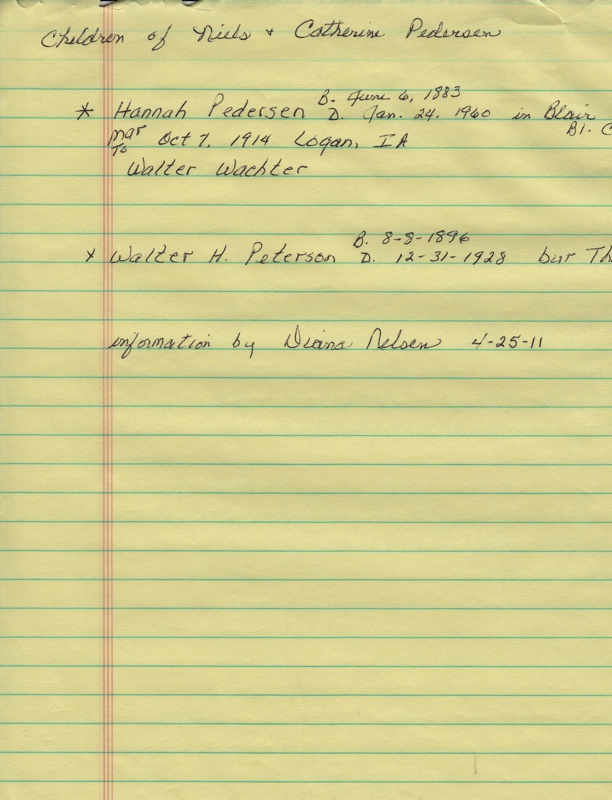 Children of Niels + Catherine Pedersen
* Hannah Pedersen B. June 6, 1883
D. Jan. 24, 1960 in Blair
Bl. C
mar to Oct 7, 1914 Logan, IA
Walter Wachter
x Walter H. Peterson B. 8-8-1896
D. 12-31-1928 bur Th
information by Diana Nelsen 4-25-11